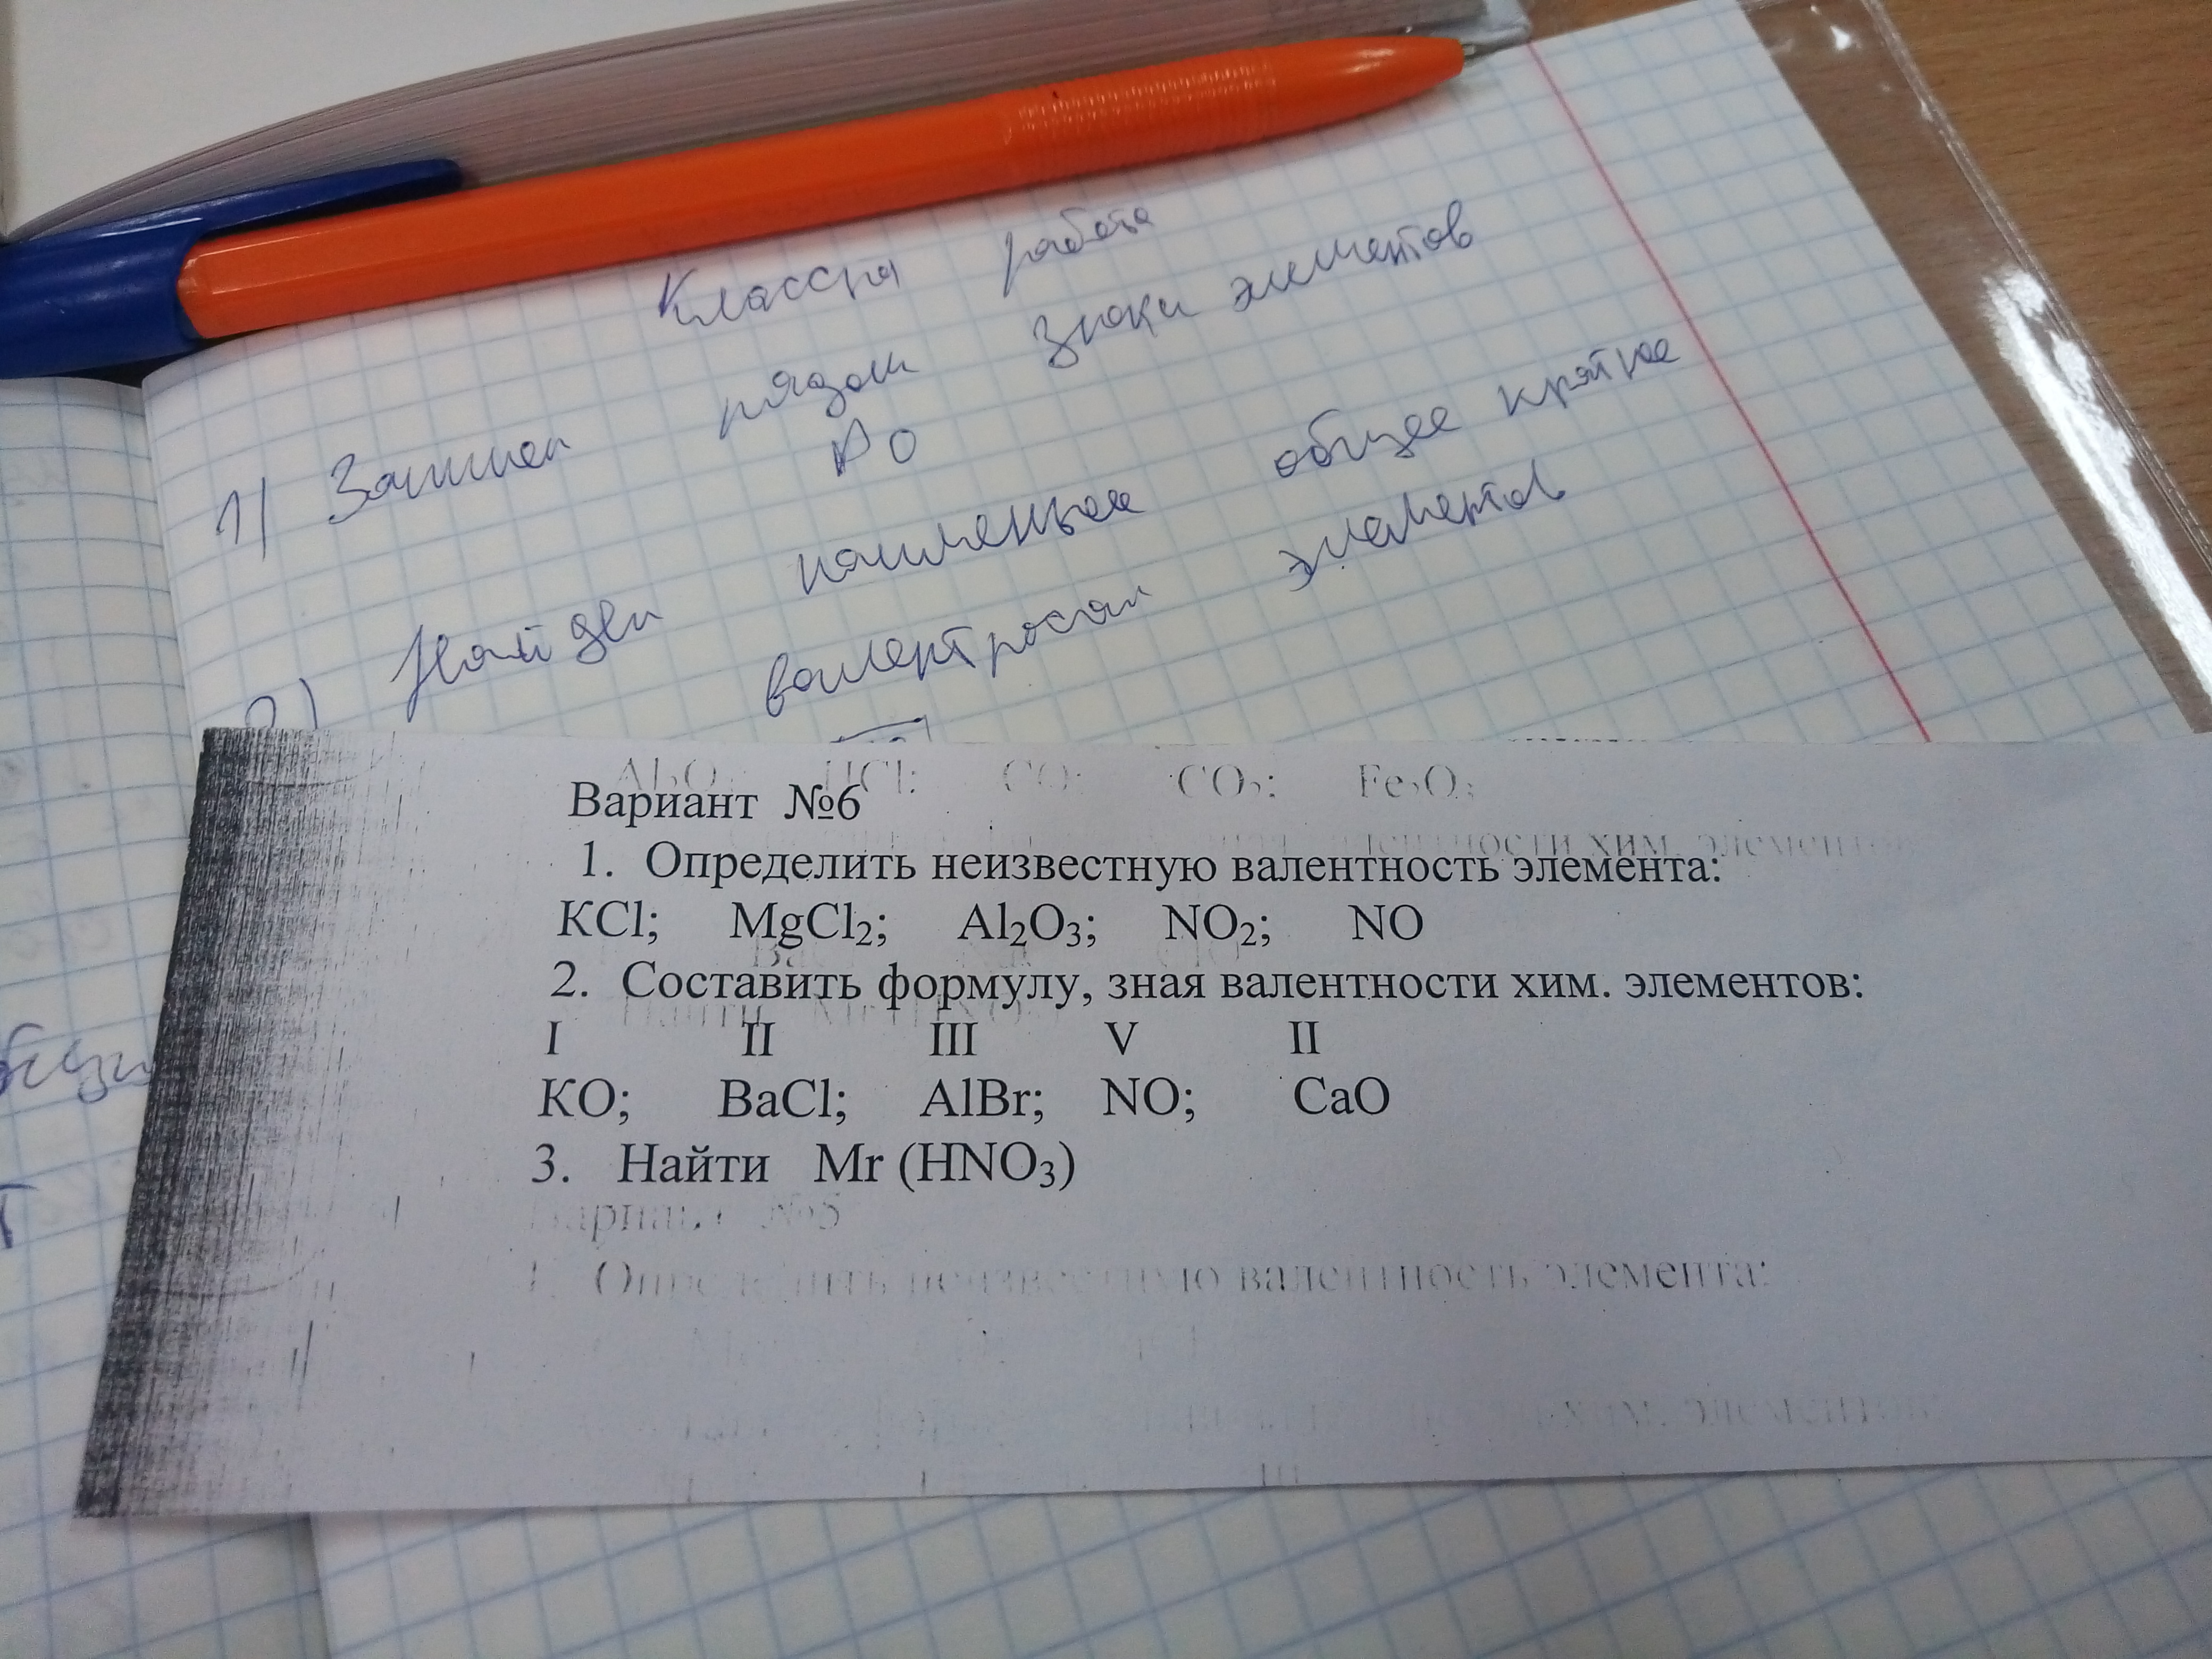 Классна работа
1) Запишем рядом знаки элементов
PO
2) Найдем наименьшее общее кратное
валентностям элементов
CO; CO₂; Fe₂O₃
Вариант №6
1. Определить неизвестную валентность элемента:
KCl; MgCl₂; Al₂O₃; NO₂; NO
2. Составить формулу, зная валентности хим. элементов:
I II III V II
KO; BaCl; AlBr; NO; CaO
3. Найти Mr (HNO₃)
Вариант №5
1. Определить неизвестную валентность элемента:
хим. элементов